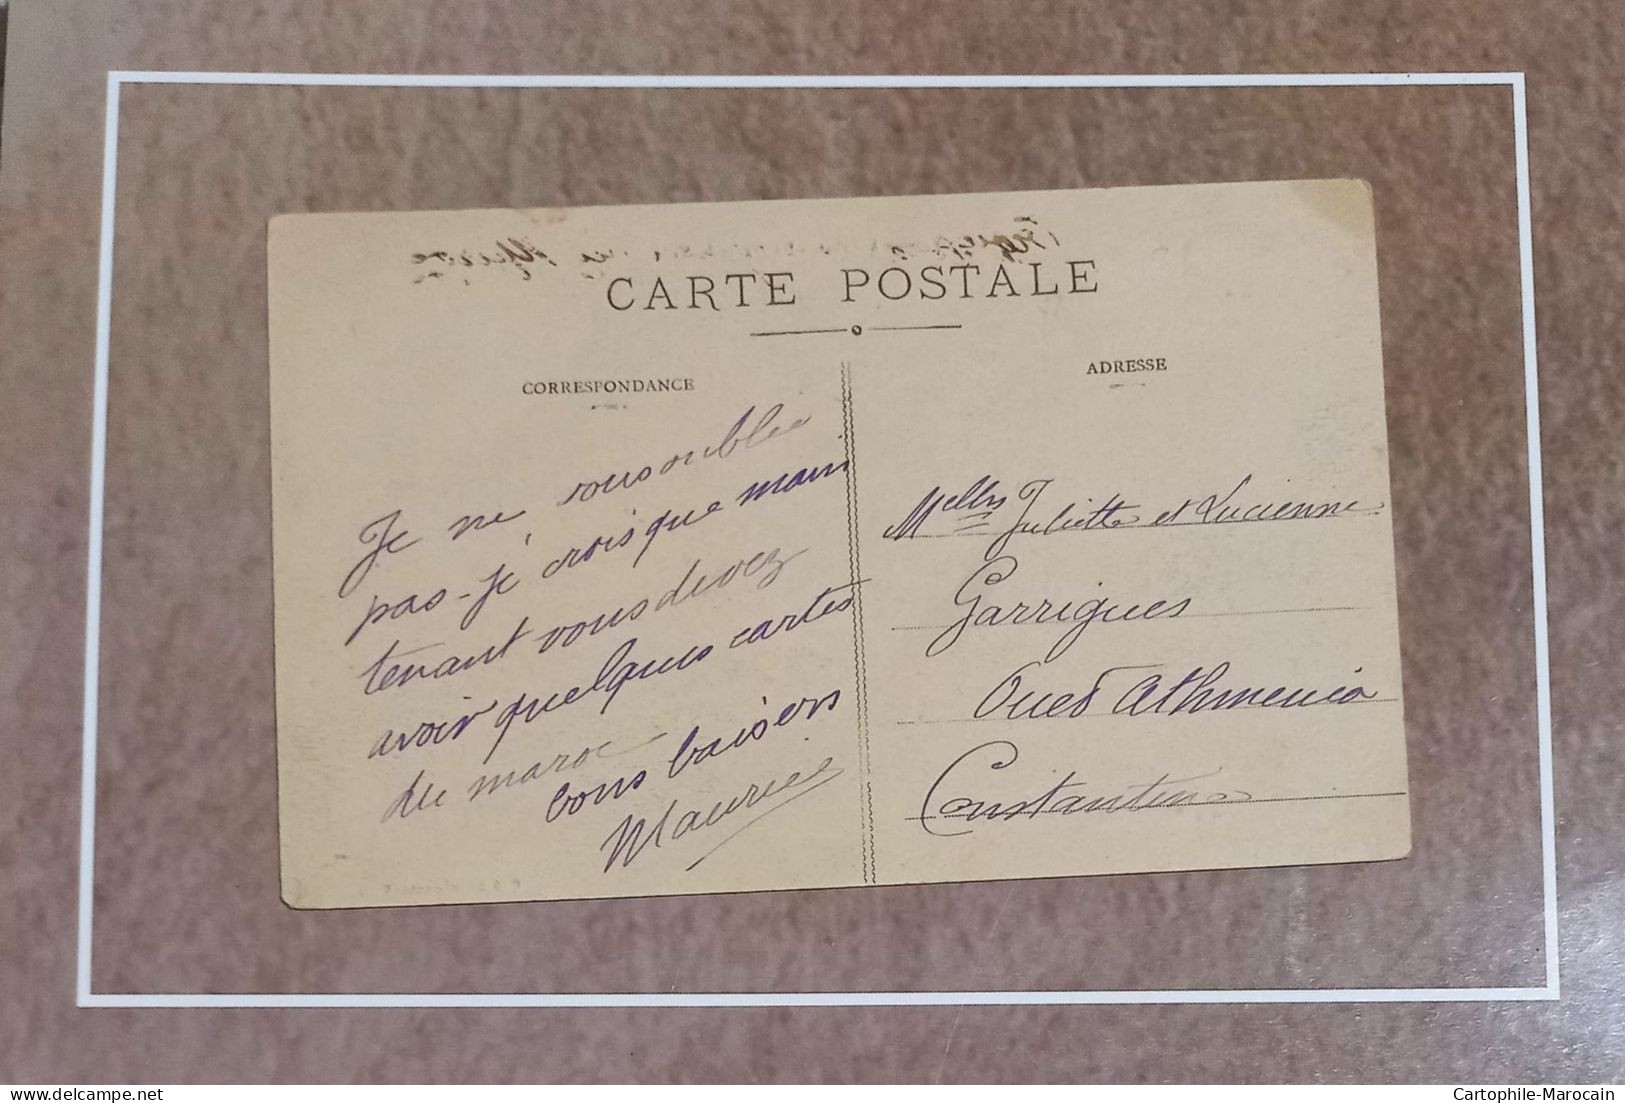 CARTE POSTALE
CORRESPONDANCE
Je ne vous oublie
pas - je crois que main
tenant vous devez
avoir quelques cartes
du maroc
bons baisers
Maurice
ADRESSE
Melles Juliette et Lucienne
Garrigues
Oued Athmenia
Constantine
delcampe.net
Cartophile-Marocain